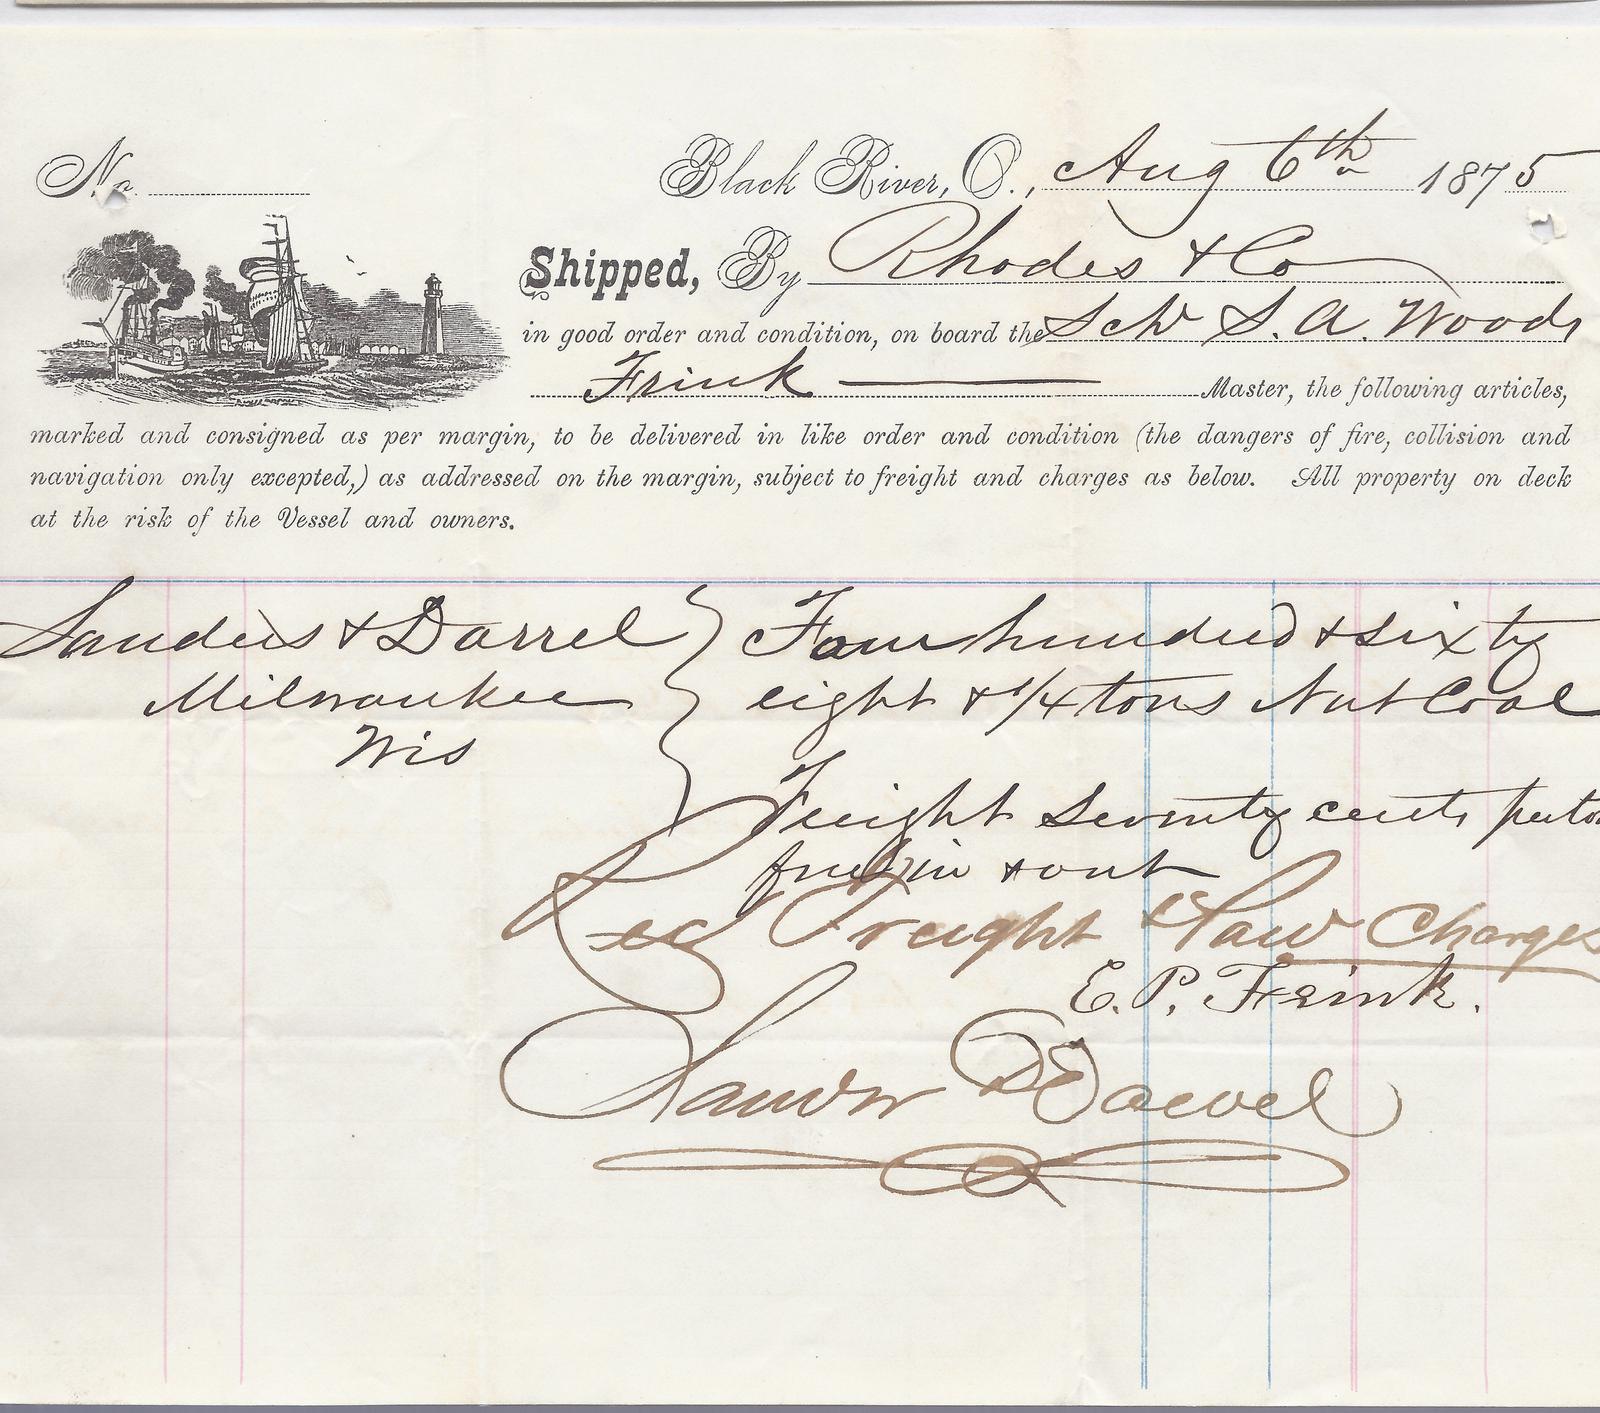 No.
Black River, O., Aug 6th 1875
Shipped, By Rhodes & Co
in good order and condition, on board the Sch S. A. Woods
Frink Master, the following articles,
marked and consigned as per margin, to be delivered in like order and condition (the dangers of fire, collision and
navigation only excepted,) as addressed on the margin, subject to freight and charges as below. All property on deck
at the risk of the Vessel and owners.
Sanders & Darrel
Milwaukee
Wis
Four hundred & sixty
eight & 1/4 tons Nut Coal
Freight Seventy cents per ton
free in & out
Rec Freight & Charges
E. P. Frink.